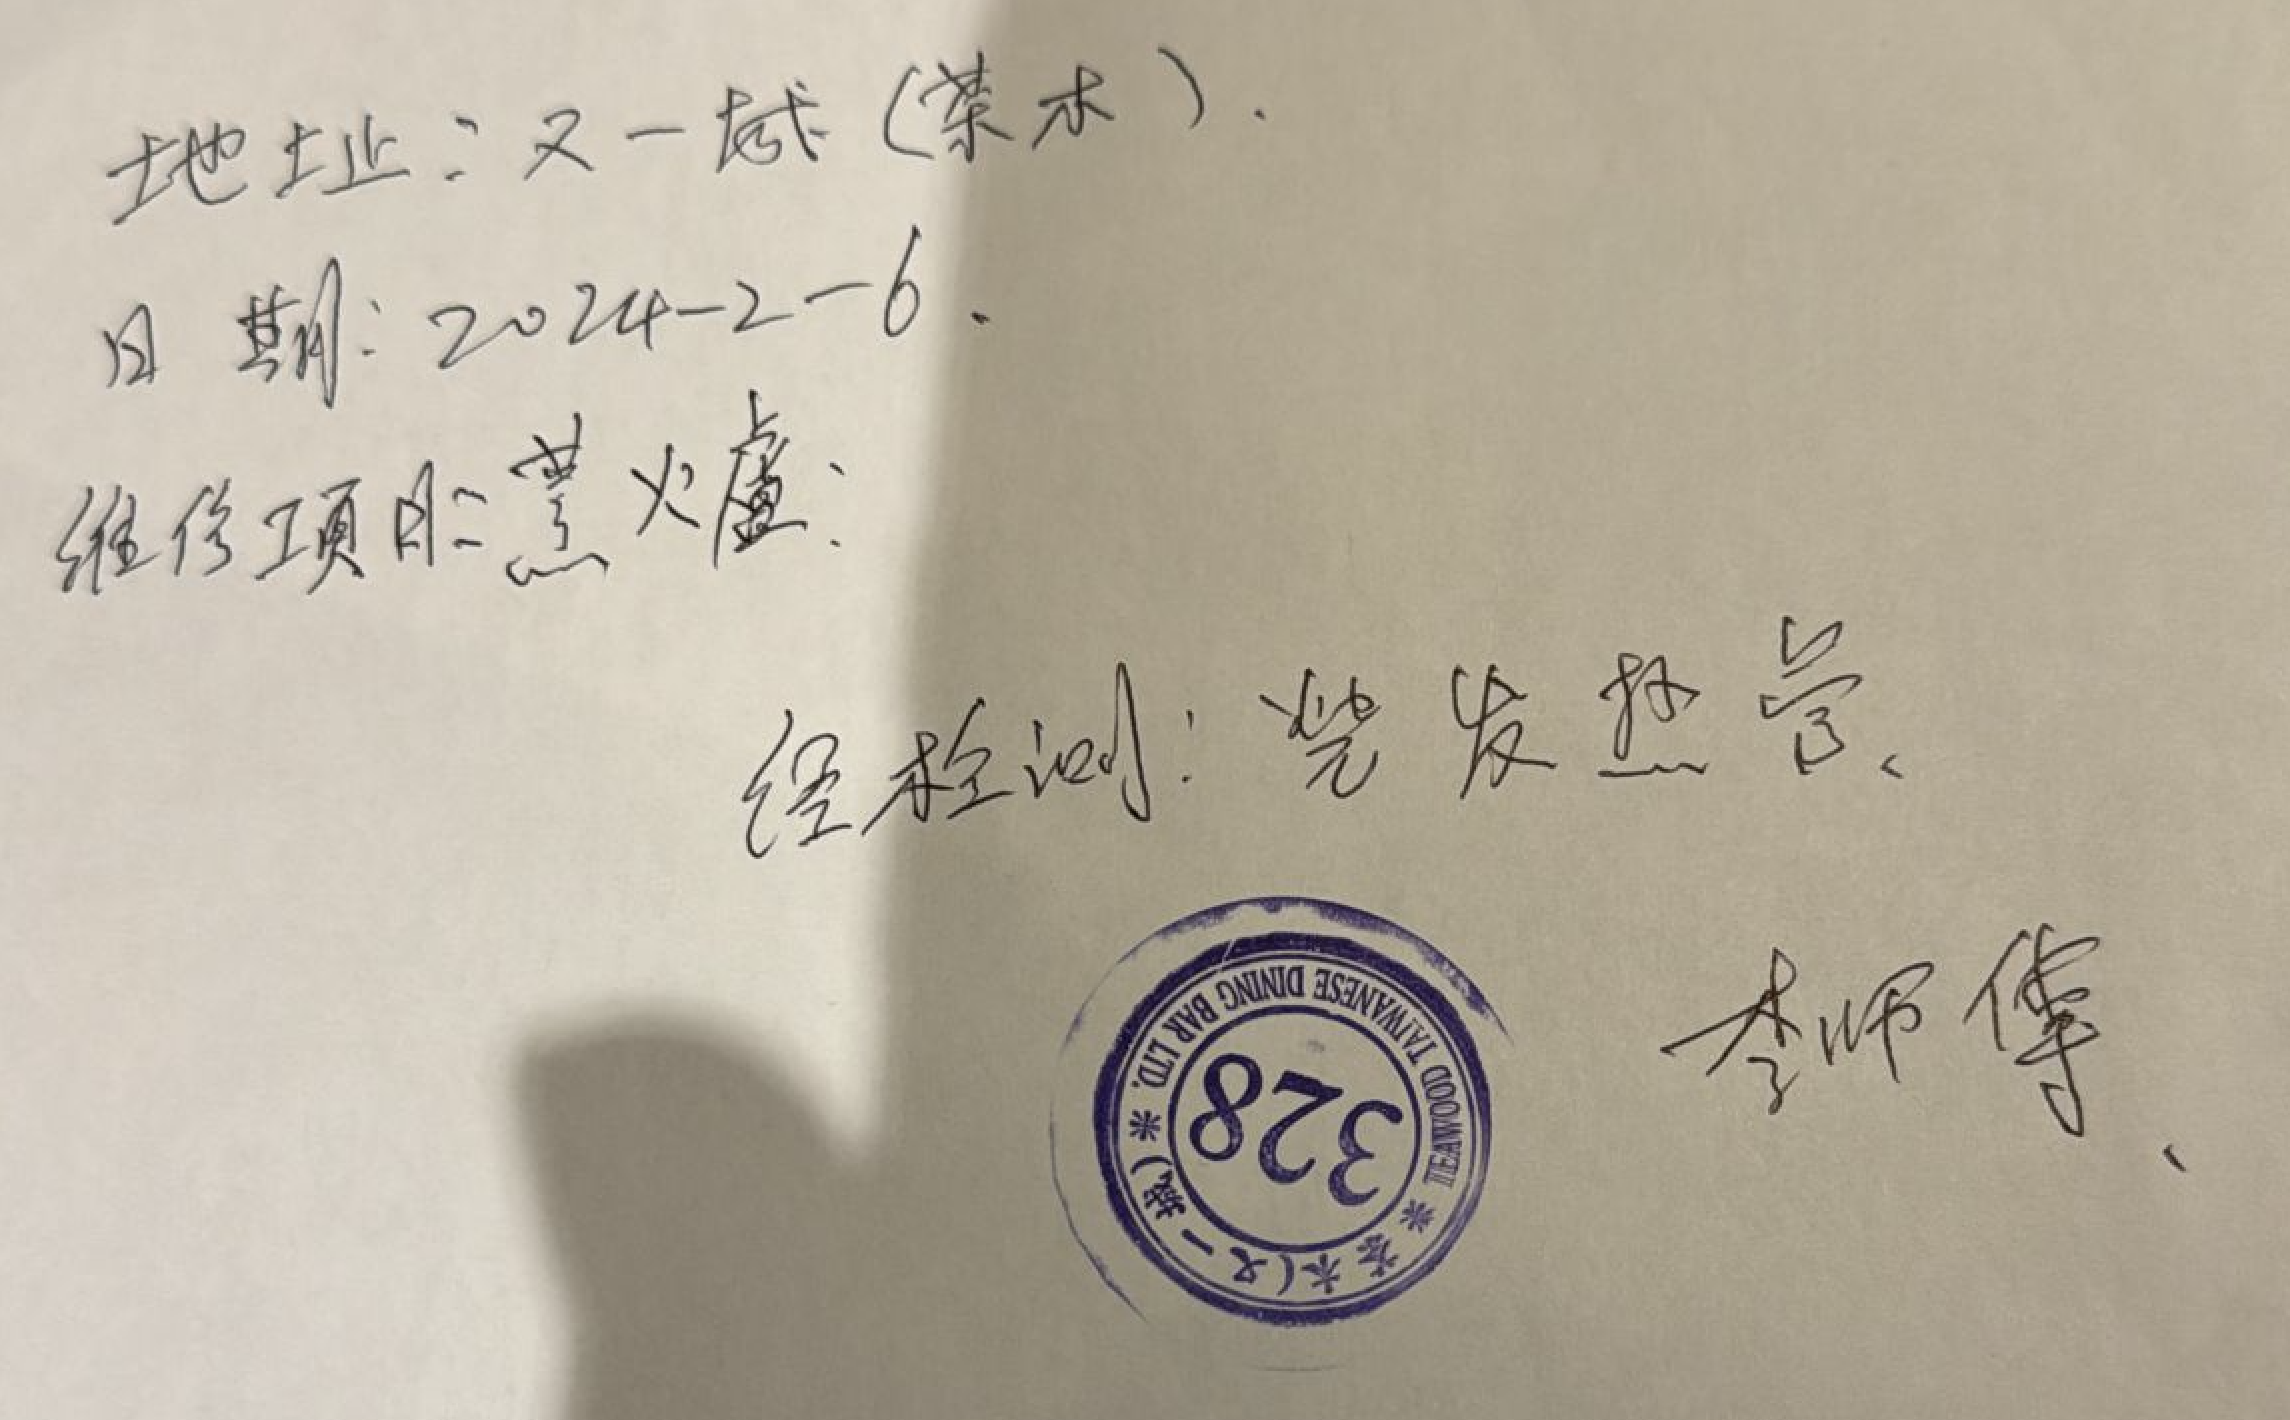 地址：又一城（茶木）.
日期：2024-2-6.
维修项目：蒸火爐：
经检测：烧发热管、
李师傅、
TEAWOOD TAIWANESE DINING BAR LTD.
328
茶木(又一城)